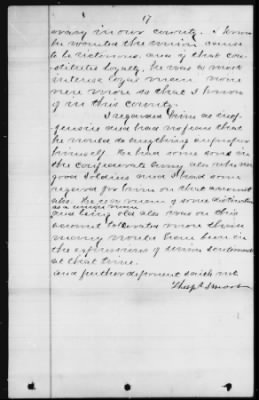 17
away in our county. I know
he wanted the union cause
to be victorious and if that con-
stitutes loyalty, he was a most
intense loyal man. none
were more so that I know
of in this county.
I regarded him as
and had no fears that
he would do anything
himself. He had some sons in
the Confederate Army also who were
good soldiers and I had some
regard for him on that account
also. He was a man of some distinction
as a
and being old also was on this
account tolerated more than
many would have been in
the expressions of union sentiment
at that time.
And further deponent saith not